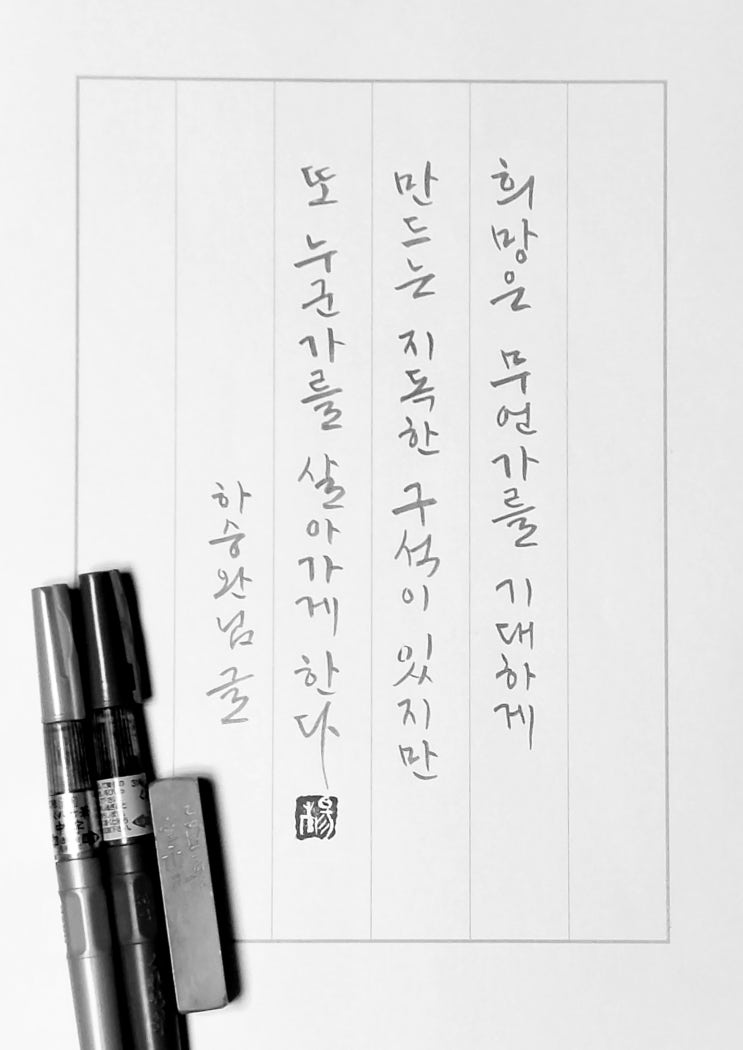 희망은 무언가를 기대하게
만드는 지독한 구석이 있지만
또 누군가를 살아가게 한다
하승완님 글